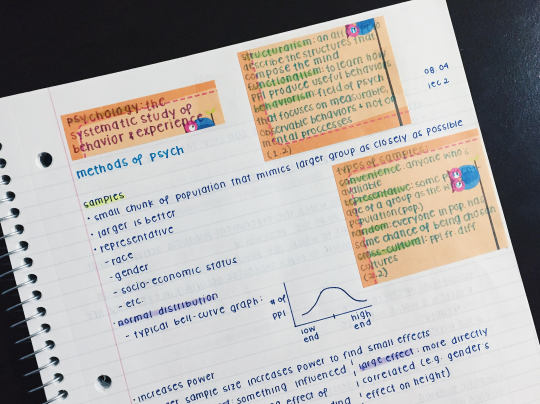 psychology: the
systematic study of
behavior & experience
structuralism: an
describe the structures that
compose the mind
functionalism: to learn how
ppl produce useful behaviors
behaviorism: field of psych
that focuses on measurable,
observable behaviors & not on
mental proccesses
(1.2)
08.04
lec 2
methods of psych
samples
• small chunk of population that mimics larger group as closely as possible
• larger is better
• representative
- race
- gender
- socio-economic status
- etc.
• normal distribution
- typical bell-curve graph:
# of
ppl
low
end
high
end
types of samples:
convenience: anyone who's
available
representative: some
age of a group as the
population (pop.)
random: everyone in pop. has
same chance of being chosen
cross-cultural: ppl fr diff
cultures
(2.2)
• increases power
sample size increases power to find small effects
something influenced
effect of
large effect: more directly
correlated (e.g. gender's
effect on height)